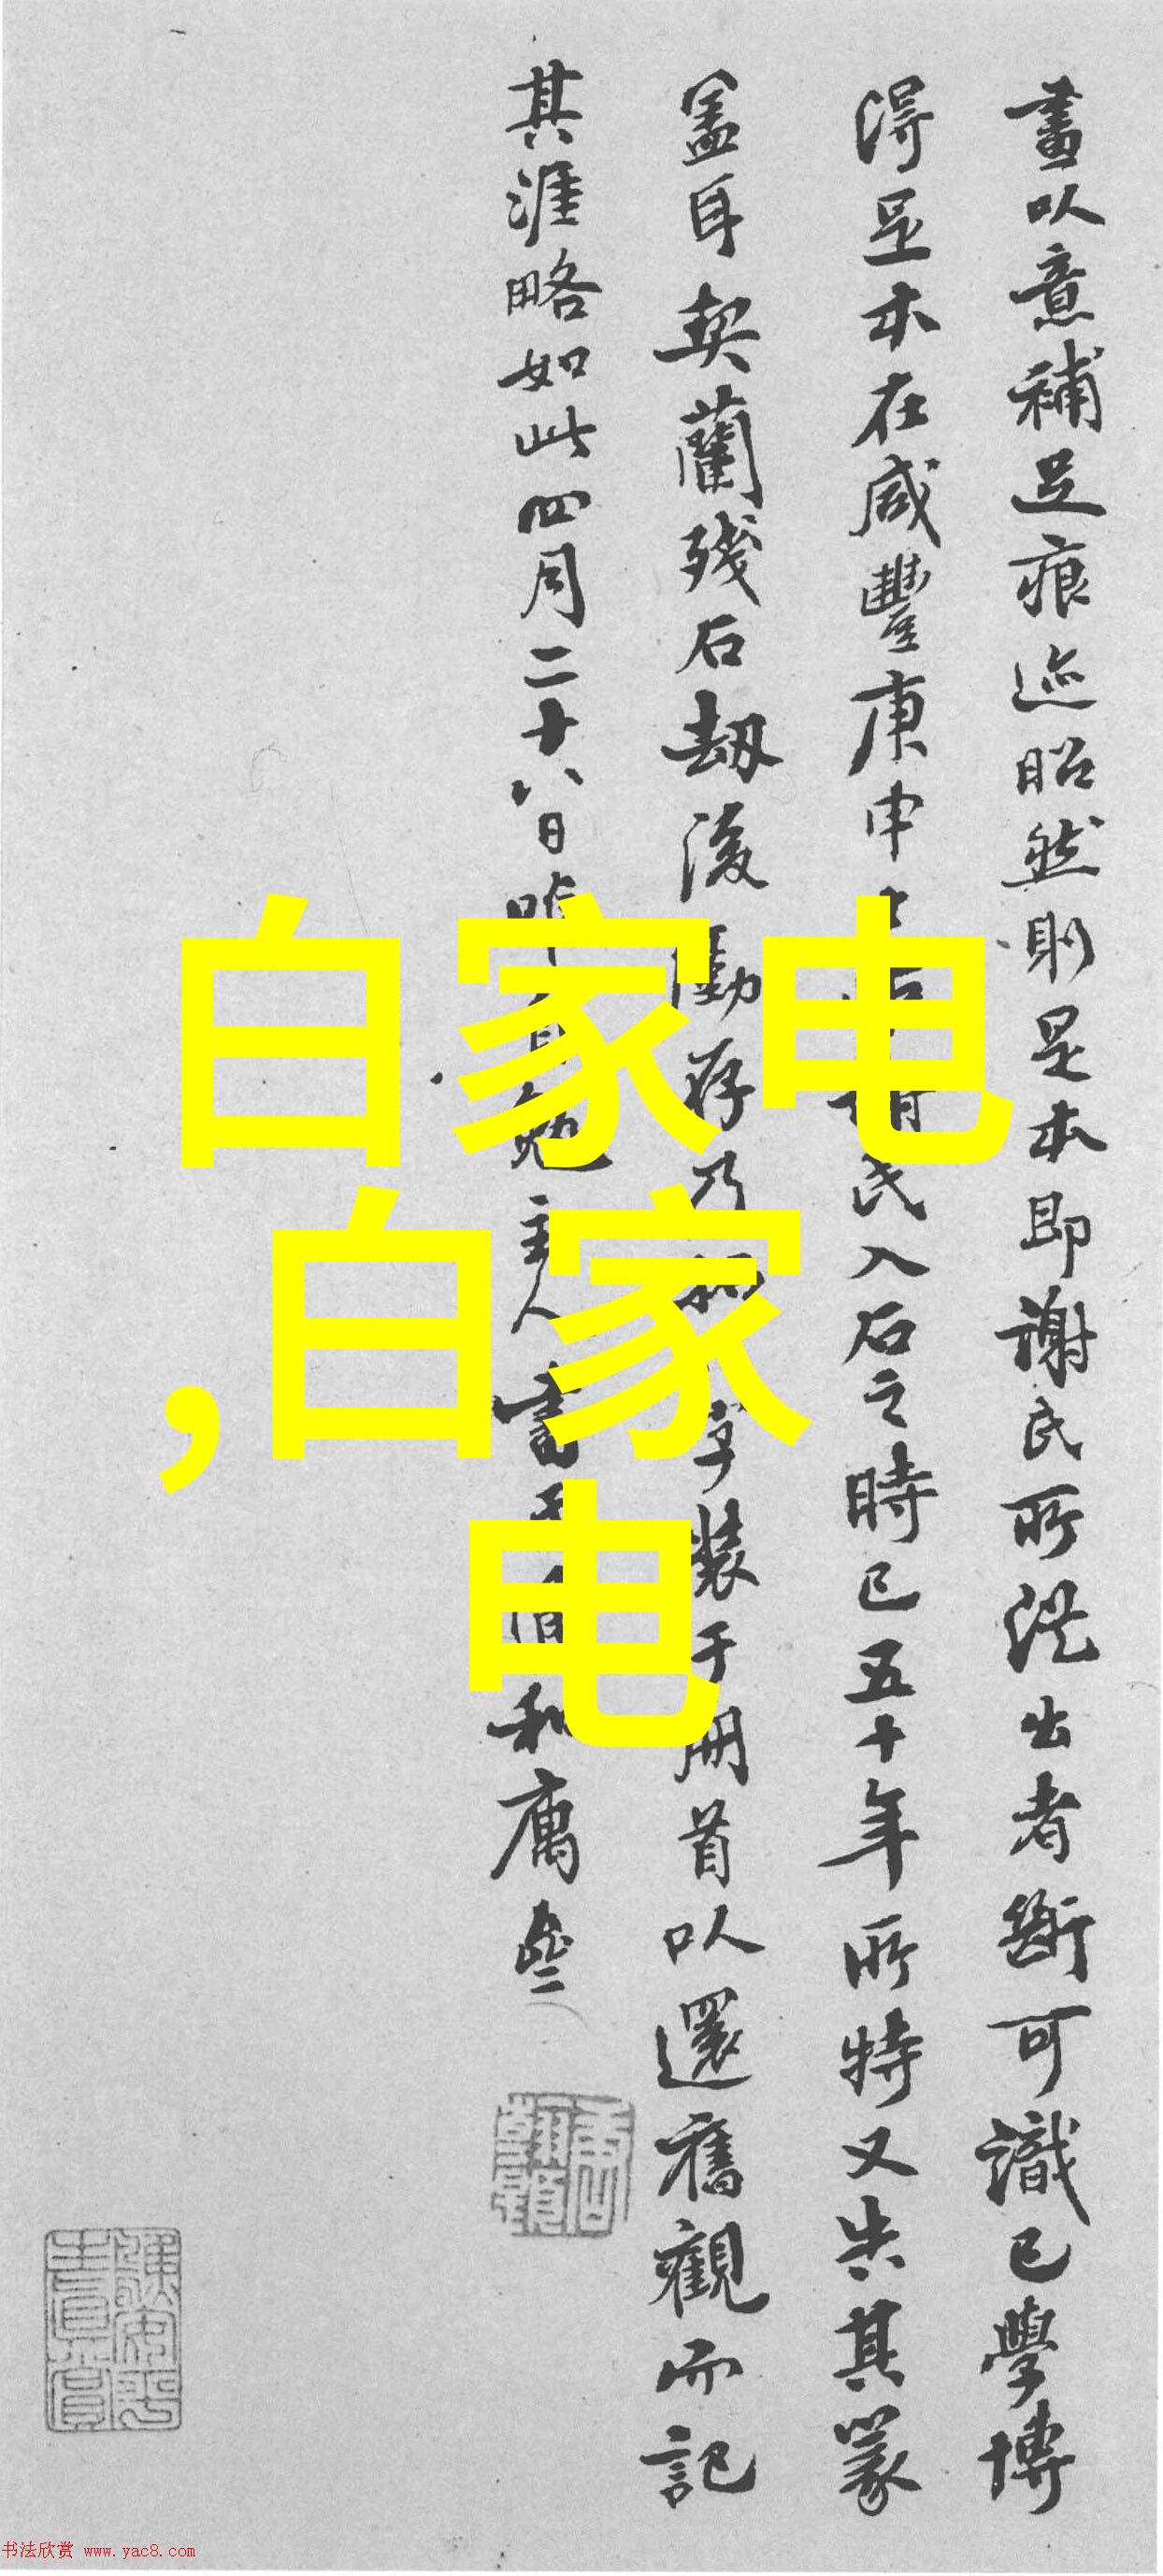 畫以意補足痕迹昭然則是本即謝氏所從出者斷可識已學博
得足本在咸豐庚申 氏入石之時已五十年所特又失其篆
盖耳契蘭殘石劫後 存乃 字裝于册首以還舊觀而記
其涯略如此四月二十八日 主人書 和庸
白家电
,白家
电
书法欣赏 www.yac8.com